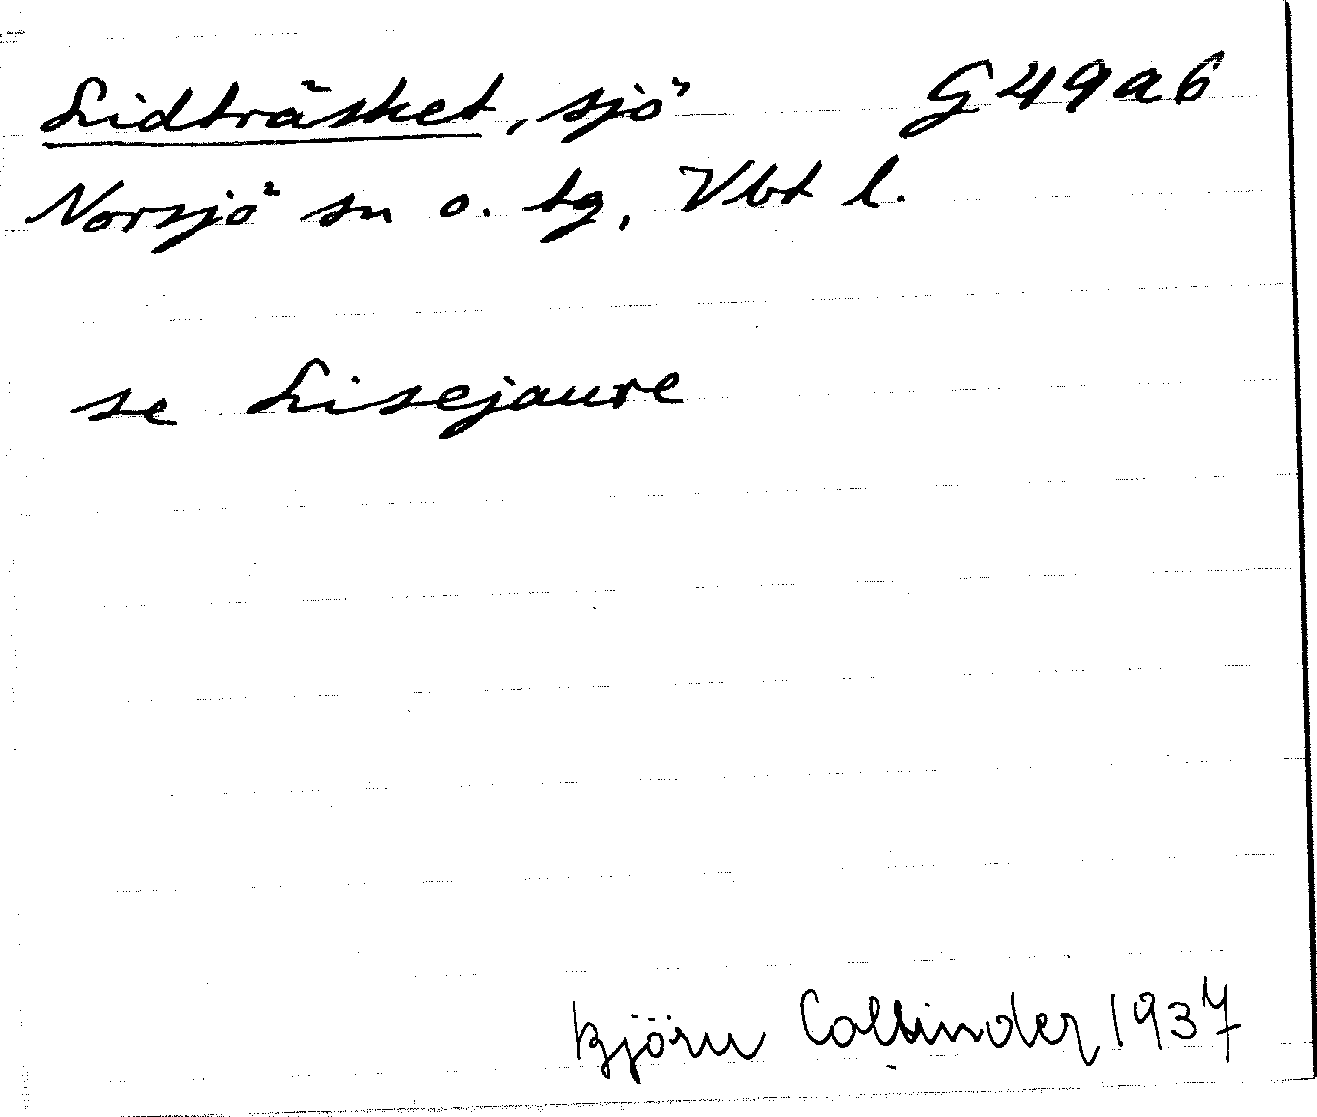 Lidträsket, sjö G49a6
Norsjö sn o. tg, Vbt l.
se Lisejaure
Björn Collinder 1937